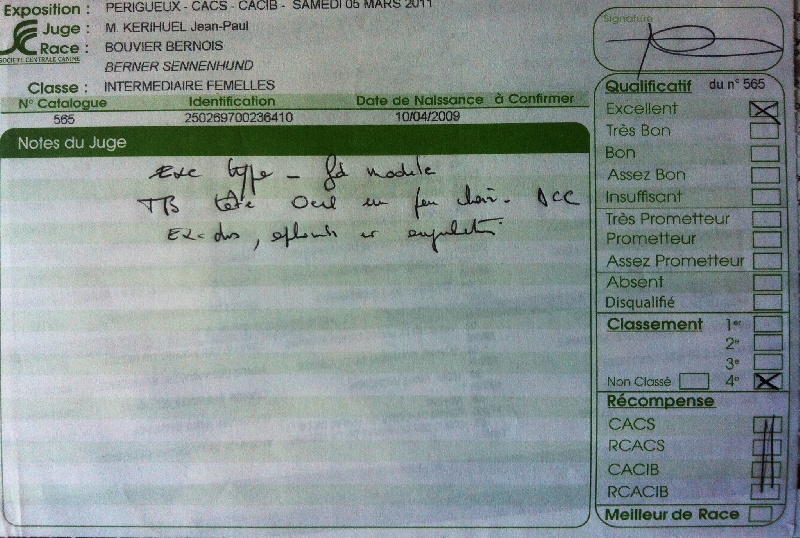 Exposition : PERIGUEUX - CACS - CACIB - SAMEDI 05 MARS 2011
Juge : M. KERIHUEL Jean-Paul
Race : BOUVIER BERNOIS
SOCIÉTÉ CENTRALE CANINE
BERNER SENNENHUND
Classe : INTERMEDIAIRE FEMELLES
N° Catalogue Identification Date de Naissance à Confirmer
565 250269700236410 10/04/2009
Notes du Juge
Exc type - gd modèle
TB tête Oeil un peu clair. DCC
Ex-dos, aplombs et angulation
Signature
Qualificatif du n° 565
Excellent
Très Bon
Bon
Assez Bon
Insuffisant
Très Prometteur
Prometteur
Assez Prometteur
Absent
Disqualifié
Classement 1er
2e
3e
Non Classé 4e
Récompense
CACS
RCACS
CACIB
RCACIB
Meilleur de Race